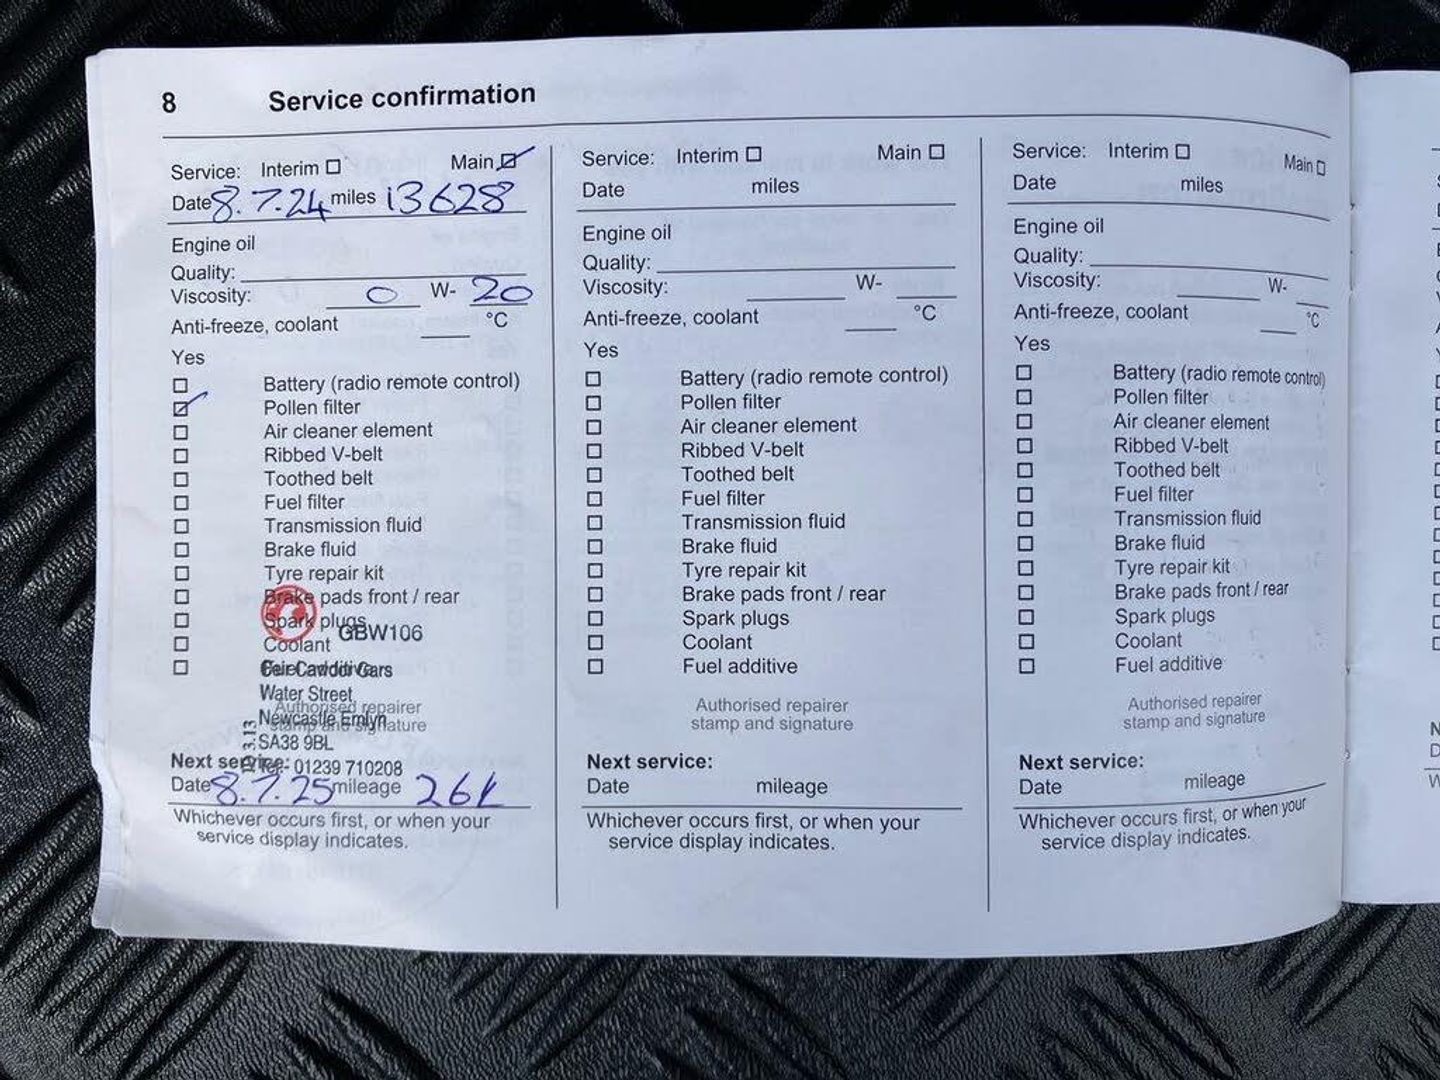 8 Service confirmation
Service: Interim Main
Date 8.7.24 miles 13628
Engine oil
Quality:
Viscosity: 0 W- 20
Anti-freeze, coolant °C
Yes
Battery (radio remote control)
Pollen filter
Air cleaner element
Ribbed V-belt
Toothed belt
Fuel filter
Transmission fluid
Brake fluid
Tyre repair kit
Brake pads front / rear
Spark plugs
GBW106
Coolant
Cawdor Cars
Water Street
Authorised repairer
Newcastle Emlyn
stamp and signature
SA38 9BL
Next service:
Tel: 01239 710208
Date 8.7.25 mileage 26k
Whichever occurs first, or when your
service display indicates.
Service: Interim Main
Date miles
Engine oil
Quality:
Viscosity: W-
Anti-freeze, coolant °C
Yes
Battery (radio remote control)
Pollen filter
Air cleaner element
Ribbed V-belt
Toothed belt
Fuel filter
Transmission fluid
Brake fluid
Tyre repair kit
Brake pads front / rear
Spark plugs
Coolant
Fuel additive
Authorised repairer
stamp and signature
Next service:
Date mileage
Whichever occurs first, or when your
service display indicates.
Service: Interim Main
Date miles
Engine oil
Quality:
Viscosity: W-
Anti-freeze, coolant °C
Yes
Battery (radio remote control)
Pollen filter
Air cleaner element
Ribbed V-belt
Toothed belt
Fuel filter
Transmission fluid
Brake fluid
Tyre repair kit
Brake pads front / rear
Spark plugs
Coolant
Fuel additive
Authorised repairer
stamp and signature
Next service:
Date mileage
Whichever occurs first, or when your
service display indicates.